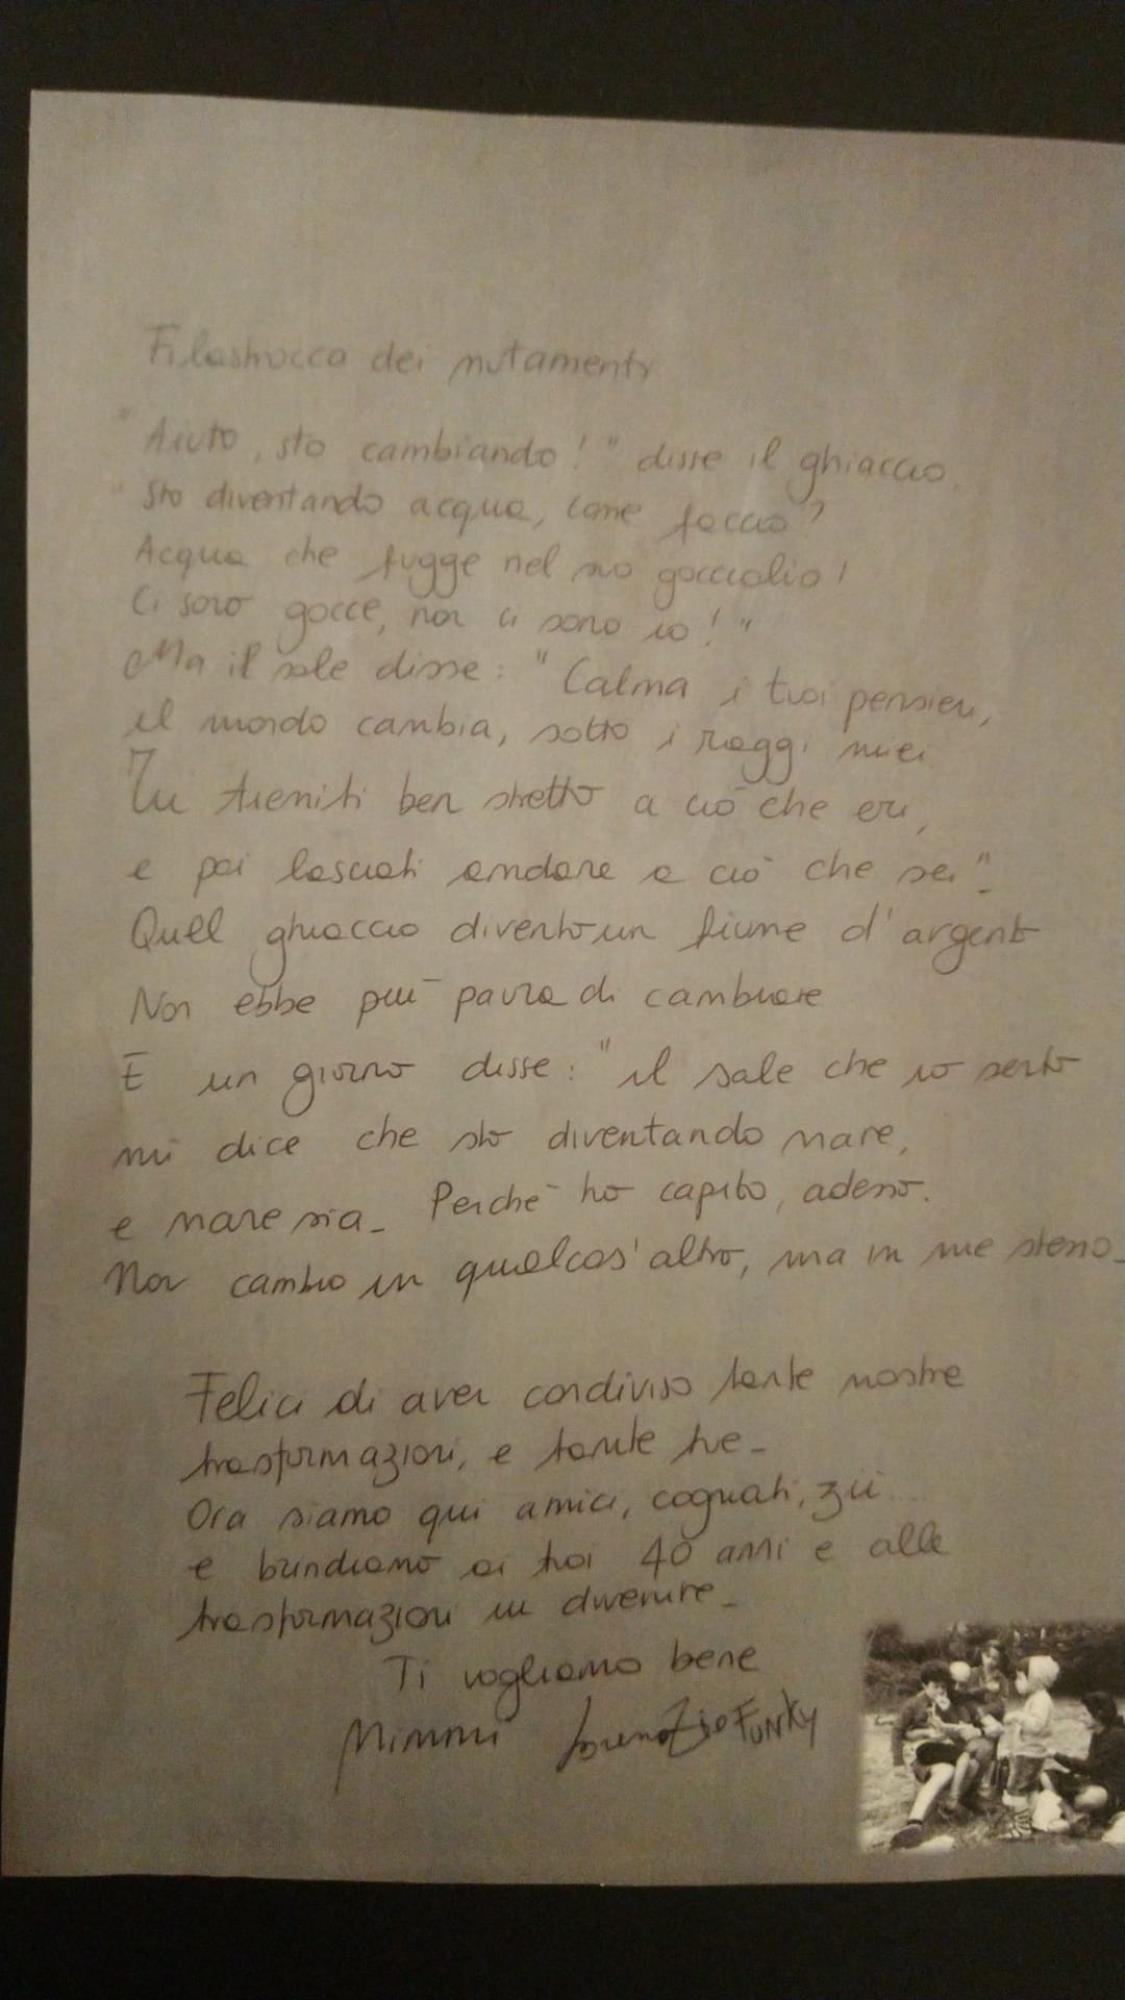 Filastrocca dei mutamenti
"Aiuto, sto cambiando!" disse il ghiaccio
"Sto diventando acqua, come faccio?
Acqua che fugge nel suo gocciolio!
Ci sono gocce, non ci sono io!"
Ma il sole disse: "Calma i tuoi pensieri,
il mondo cambia, sotto i raggi miei
Tu tieniti ben stretto a ciò che eri,
e poi lasciati andare a ciò che sei".
Quell ghiaccio diventò un fiume d'argento
Non ebbe più paura di cambiare
E un giorno disse: "il sale che io sento
mi dice che sto diventando mare,
e mare sia. Perché ho capito, adesso.
Non cambio in qualcos'altro, ma in me stesso.
Felici di aver condiviso tante nostre
trasformazioni, e tante tue.
Ora siamo qui amici, cognati, zii
e brindiamo ai tuoi 40 anni e alle
trasformazioni in divenire.
Ti vogliamo bene
Mimmi Funky